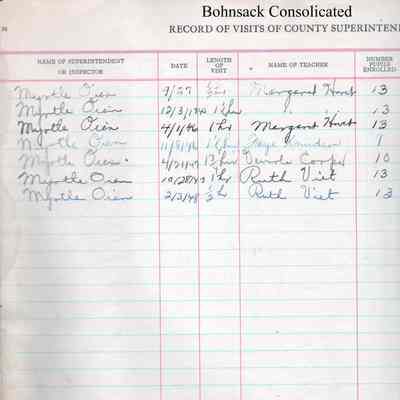 Bohnsack Consolicated
RECORD OF VISITS OF COUNTY SUPERINTEN
NAME OF SUPERINTENDENT OR INSPECTOR DATE LENGTH OF VISIT NAME OF TEACHER NUMBER PUPILS ENROLLED
Myrtle Oien 9/27 1/2 hr Margaret Hart 13
Myrtle Oien 12/3/ hr " " 13
Myrtle Oien 4/1/46 1 hr Margaret Hart 13
Myrtle Oien hr Faye
Myrtle Oien 4/21/47 hr 10
Myrtle Oien 10/28/47 1 hr Ruth Viet 13
Myrtle Oien 2/3/48 1/2 Ruth Viet 13